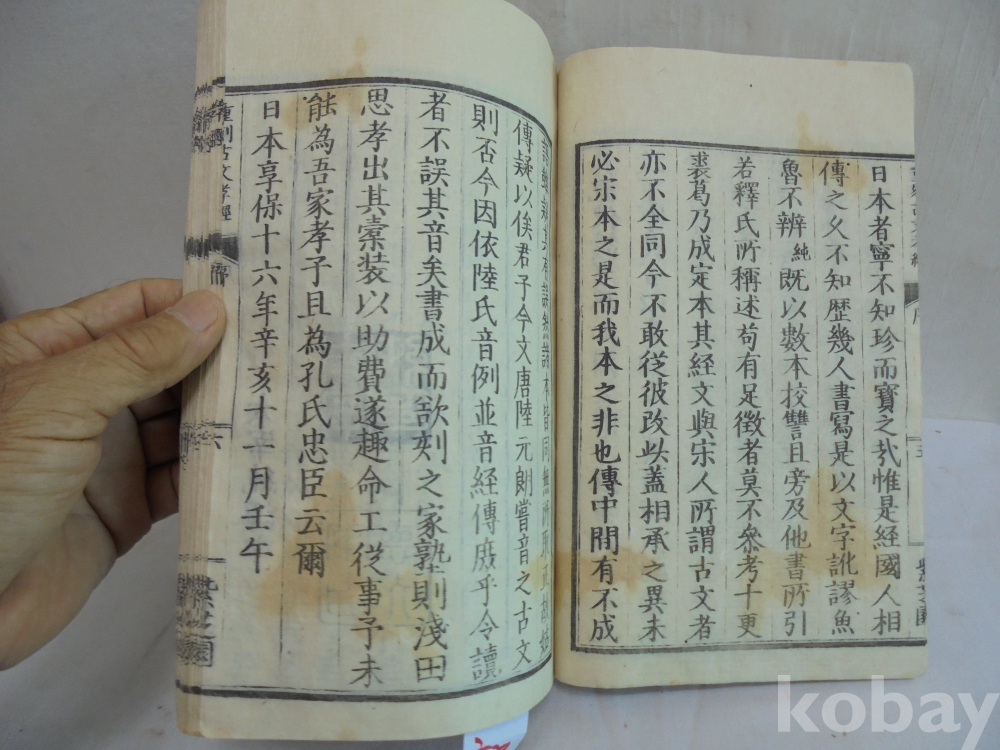 日本者寧不知珍而寶之哉惟是經國人相
傳之乆不知歷幾人書寫是以文字訛謬魚
魯不辨純既以數本校讐且旁及他書所引
若釋氏所稱述苟有足徵者莫不參考十更
裘葛乃成定本其經文與宋人所謂古文者
亦不全同今不敢從彼改此蓋相承之異未
必宋本之是而我本之非也傳中間有不成
傳疑以俟君子今文唐陸元朗嘗音之古文
則否今因依陸氏音例並音経傳庶乎令讀
者不誤其音矣書成而欲刻之家塾則淺田
思孝出其槖裝以助費遂趣命工從事予未
能為吾家孝子且為孔氏忠臣云爾
日本享保十六年辛亥十一月壬午
重刻古文孝經
序
六
紫芝園
kobay